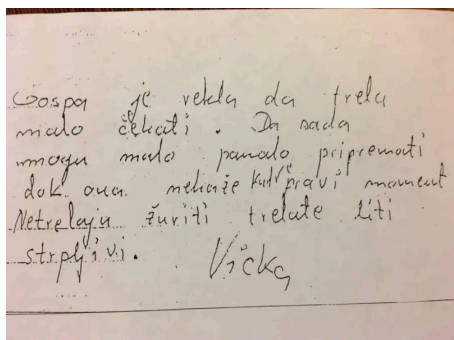 Gospa je rekla da treba
malo čekati. Da sada
mogu malo pomalo pripremati
dok ona nekaže kad pravi moment
Netrebaju žuriti trebate biti
strpljivi.
Vicka